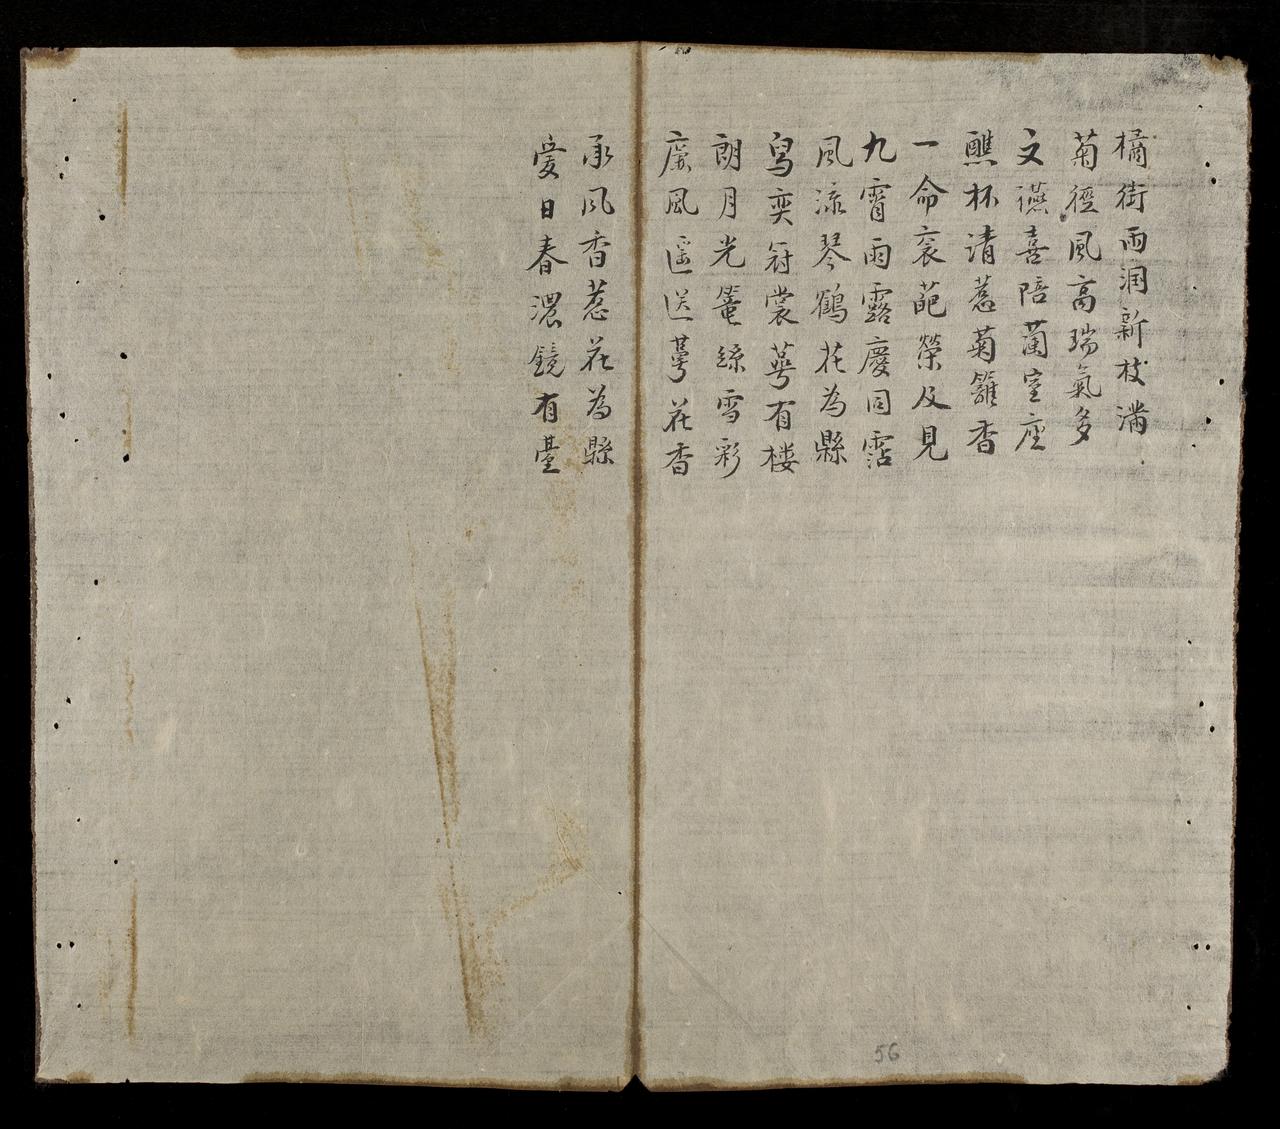 橘街雨润新枝滿
菊徑風高瑞氣多
文讌喜陪蘭室座
醮杯清惹菊籬香
一命袞葩榮及見
九霄雨露慶同霑
風流琴鶴花為縣
舄奕冠裳萼有楼
朗月光篭綵雪彩
廣風遥送萼花香
承风香惹花為縣
愛日春濃鏡有臺
56